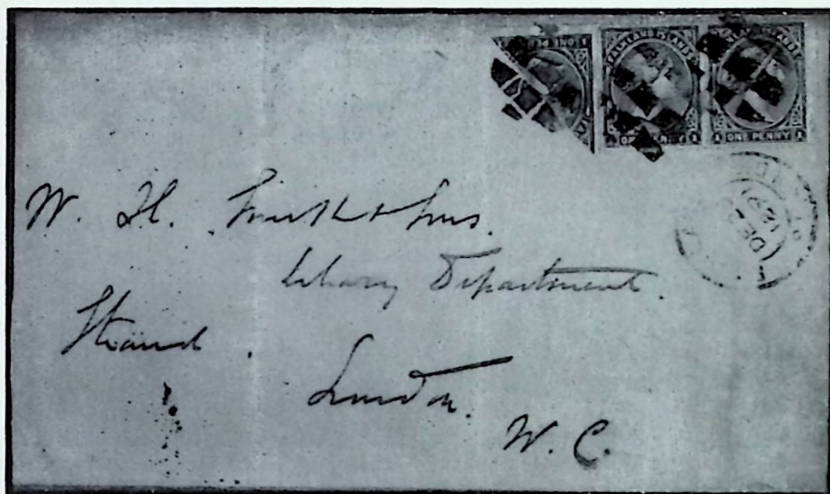 FALKLAND ISLANDS
ONE PENNY
ONE PENNY
DE
91
W. H. Smith & Sons.
Library Department.
Strand.
London.
W. C.